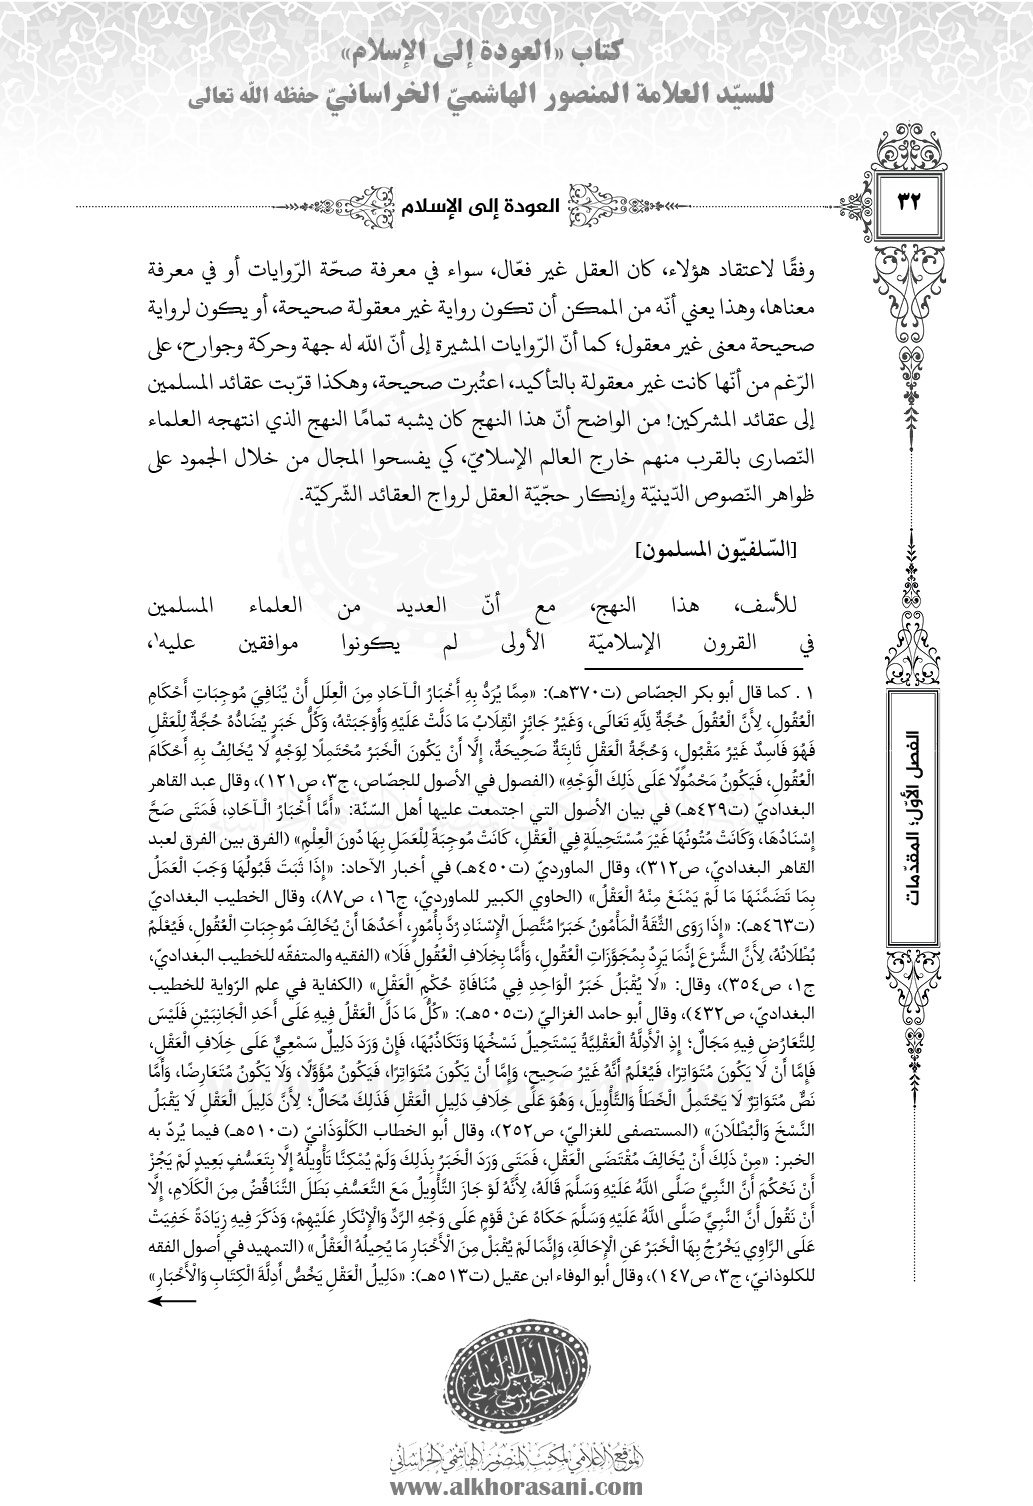 كتاب «العودة إلى الإسلام»
للسيّد العلامة المنصور الهاشميّ الخراسانيّ حفظه الله تعالى
٣٢
العودة إلى الإسلام
وفقًا لاعتقاد هؤلاء، كان العقل غير فعّال، سواء في معرفة صحّة الرّوايات أو في معرفة
معناها، وهذا يعني أنّه من الممكن أن تكون رواية غير معقولة صحيحة، أو يكون لرواية
صحيحة معنى غير معقول؛ كما أنّ الرّوايات المشيرة إلى أنّ الله له جهة وحركة وجوارح، على
الرّغم من أنّها كانت غير معقولة بالتأكيد، اعتُبرت صحيحة، وهكذا قرّبت عقائد المسلمين
إلى عقائد المشركين! من الواضح أنّ هذا النهج كان يشبه تمامًا النهج الذي انتهجه العلماء
النّصارى بالقرب منهم خارج العالم الإسلاميّ، كي يفسحوا المجال من خلال الجمود على
ظواهر النّصوص الدّينيّة وإنكار حجّيّة العقل لرواج العقائد الشّركيّة.
[السّلفيّون المسلمون]
للأسف، هذا النهج، مع أنّ العديد من العلماء المسلمين
في القرون الإسلاميّة الأولى لم يكونوا موافقين عليه١،
١ . كما قال أبو بكر الجصّاص (ت٣٧٠هـ): «مِمَّا يُرَدُّ بِهِ أَخْبَارُ الْـآحَادِ مِنَ الْعِلَلِ أَنْ يُنَافِيَ مُوجِبَاتِ أَحْكَامِ
الْعُقُولِ، لِأَنَّ الْعُقُولَ حُجَّةٌ لِلَّهِ تَعَالَى، وَغَيْرُ جَائِزٍ انْقِلَابُ مَا دَلَّتْ عَلَيْهِ وَأَوْجَبَتْهُ، وَكُلُّ خَبَرٍ يُضَادُّهُ حُجَّةٌ لِلْعَقْلِ
فَهُوَ فَاسِدٌ غَيْرُ مَقْبُولٍ، وَحُجَّةُ الْعَقْلِ ثَابِتَةٌ صَحِيحَةٌ، إِلَّا أَنْ يَكُونَ الْخَبَرُ مُحْتَمِلًا لِوَجْهٍ لَا يُخَالِفُ بِهِ أَحْكَامَ
الْعُقُولِ، فَيَكُونُ مَحْمُولًا عَلَى ذَلِكَ الْوَجْهِ» (الفصول في الأصول للجصّاص، ج٣، ص١٢١)، وقال عبد القاهر
البغداديّ (ت٤٢٩هـ) في بيان الأصول التي اجتمعت عليها أهل السّنّة: «أَمَّا أَخْبَارُ الْـآحَادِ، فَمَتَى صَحَّ
إِسْنَادُهَا، وَكَانَتْ مُتُونُهَا غَيْرَ مُسْتَحِيلَةٍ فِي الْعَقْلِ، كَانَتْ مُوجِبَةً لِلْعَمَلِ بِهَا دُونَ الْعِلْمِ» (الفرق بين الفرق لعبد
القاهر البغداديّ، ص٣١٢)، وقال الماورديّ (ت٤٥٠هـ) في أخبار الآحاد: «إِذَا ثَبَتَ قَبُولُهَا وَجَبَ الْعَمَلُ
بِمَا تَضَمَّنَهَا مَا لَمْ يَمْنَعْ مِنْهُ الْعَقْلُ» (الحاوي الكبير للماورديّ، ج١٦، ص٨٧)، وقال الخطيب البغداديّ
(ت٤٦٣هـ): «إِذَا رَوَى الثِّقَةُ الْمَأْمُونُ خَبَرًا مُتَّصِلَ الْإِسْنَادِ رُدَّ بِأُمُورٍ، أَحَدُهَا أَنْ يُخَالِفَ مُوجِبَاتِ الْعُقُولِ، فَيُعْلَمُ
بُطْلَانُهُ، لِأَنَّ الشَّرْعَ إِنَّمَا يَرِدُ بِمُجَوَّزَاتِ الْعُقُولِ، وَأَمَّا بِخِلَافِ الْعُقُولِ فَلَا» (الفقيه والمتفقّه للخطيب البغداديّ،
ج١، ص٣٥٤)، وقال: «لَا يُقْبَلُ خَبَرُ الْوَاحِدِ فِي مُنَافَاةِ حُكْمِ الْعَقْلِ» (الكفاية في علم الرّواية للخطيب
البغداديّ، ص٤٣٢)، وقال أبو حامد الغزاليّ (ت٥٠٥هـ): «كُلُّ مَا دَلَّ الْعَقْلُ فِيهِ عَلَى أَحَدِ الْجَانِبَيْنِ فَلَيْسَ
لِلتَّعَارُضِ فِيهِ مَجَالٌ؛ إِذِ الْأَدِلَّةُ الْعَقْلِيَّةُ يَسْتَحِيلُ نَسْخُهَا وَتَكَاذُبُهَا، فَإِنْ وَرَدَ دَلِيلٌ سَمْعِيٌّ عَلَى خِلَافِ الْعَقْلِ،
فَإِمَّا أَنْ لَا يَكُونَ مُتَوَاتِرًا، فَيُعْلَمُ أَنَّهُ غَيْرُ صَحِيحٍ، وَإِمَّا أَنْ يَكُونَ مُتَوَاتِرًا، فَيَكُونُ مُؤَوَّلًا، وَلَا يَكُونُ مُتَعَارِضًا، وَأَمَّا
نَصٌّ مُتَوَاتِرٌ لَا يَحْتَمِلُ الْخَطَأَ وَالتَّأْوِيلَ، وَهُوَ عَلَى خِلَافِ دَلِيلِ الْعَقْلِ فَذَلِكَ مُحَالٌ؛ لِأَنَّ دَلِيلَ الْعَقْلِ لَا يَقْبَلُ
النَّسْخَ وَالْبُطْلَانَ» (المستصفى للغزاليّ، ص٢٥٢)، وقال أبو الخطاب الكَلْوَذَانيّ (ت٥١٠هـ) فيما يُردّ به
الخبر: «مِنْ ذَلِكَ أَنْ يُخَالِفَ مُقْتَضَى الْعَقْلِ، فَمَتَى وَرَدَ الْخَبَرُ بِذَلِكَ وَلَمْ يُمْكِنَّا تَأْوِيلُهُ إِلَّا بِتَعَسُّفٍ بَعِيدٍ لَمْ يَجُزْ
أَنْ نَحْكُمَ أَنَّ النَّبِيَّ صَلَّى اللَّهُ عَلَيْهِ وَسَلَّمَ قَالَهُ، لِأَنَّهُ لَوْ جَازَ التَّأْوِيلُ مَعَ التَّعَسُّفِ بَطَلَ التَّنَاقُضُ مِنَ الْكَلَامِ، إِلَّا
أَنْ نَقُولَ أَنَّ النَّبِيَّ صَلَّى اللَّهُ عَلَيْهِ وَسَلَّمَ حَكَاهُ عَنْ قَوْمٍ عَلَى وَجْهِ الرَّدِّ وَالْإِنْكَارِ عَلَيْهِمْ، وَذَكَرَ فِيهِ زِيَادَةً خَفِيَتْ
عَلَى الرَّاوِي يَخْرُجُ بِهَا الْخَبَرُ عَنِ الْإِحَالَةِ، وَإِنَّمَا لَمْ يُقْبَلْ مِنَ الْأَخْبَارِ مَا يُحِيلُهُ الْعَقْلُ» (التمهيد في أصول الفقه
للكلوذانيّ، ج٣، ص١٤٧)، وقال أبو الوفاء ابن عقيل (ت٥١٣هـ): «دَلِيلُ الْعَقْلِ يَخُصُّ أَدِلَّةَ الْكِتَابِ وَالْأَخْبَارِ»
الفصل الأوّل؛ المقدّمات
الموقع الإعلامي لمكتب المنصور الهاشمي الخراساني
www.alkhorasani.com